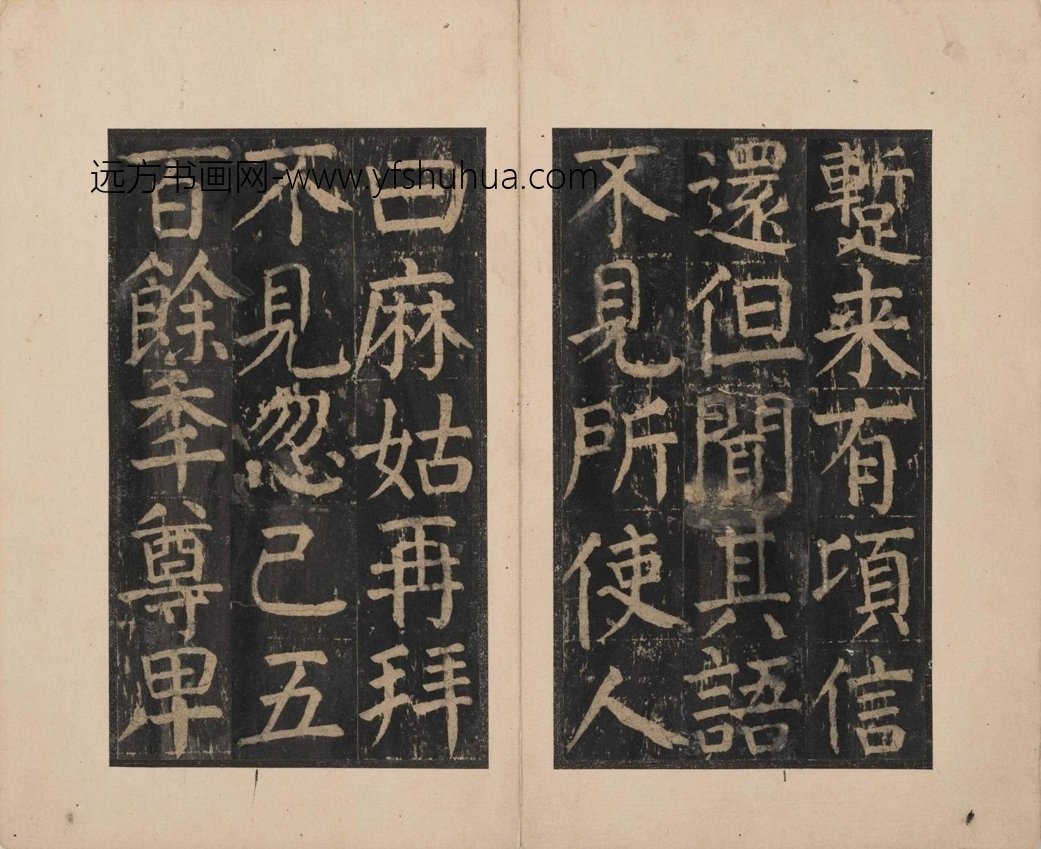 蹔来有頃信
還但聞其語
不見所使人
曰麻姑再拜
不見忽已五
百餘年尊卑
远方书画网-www.yfshuhua.com